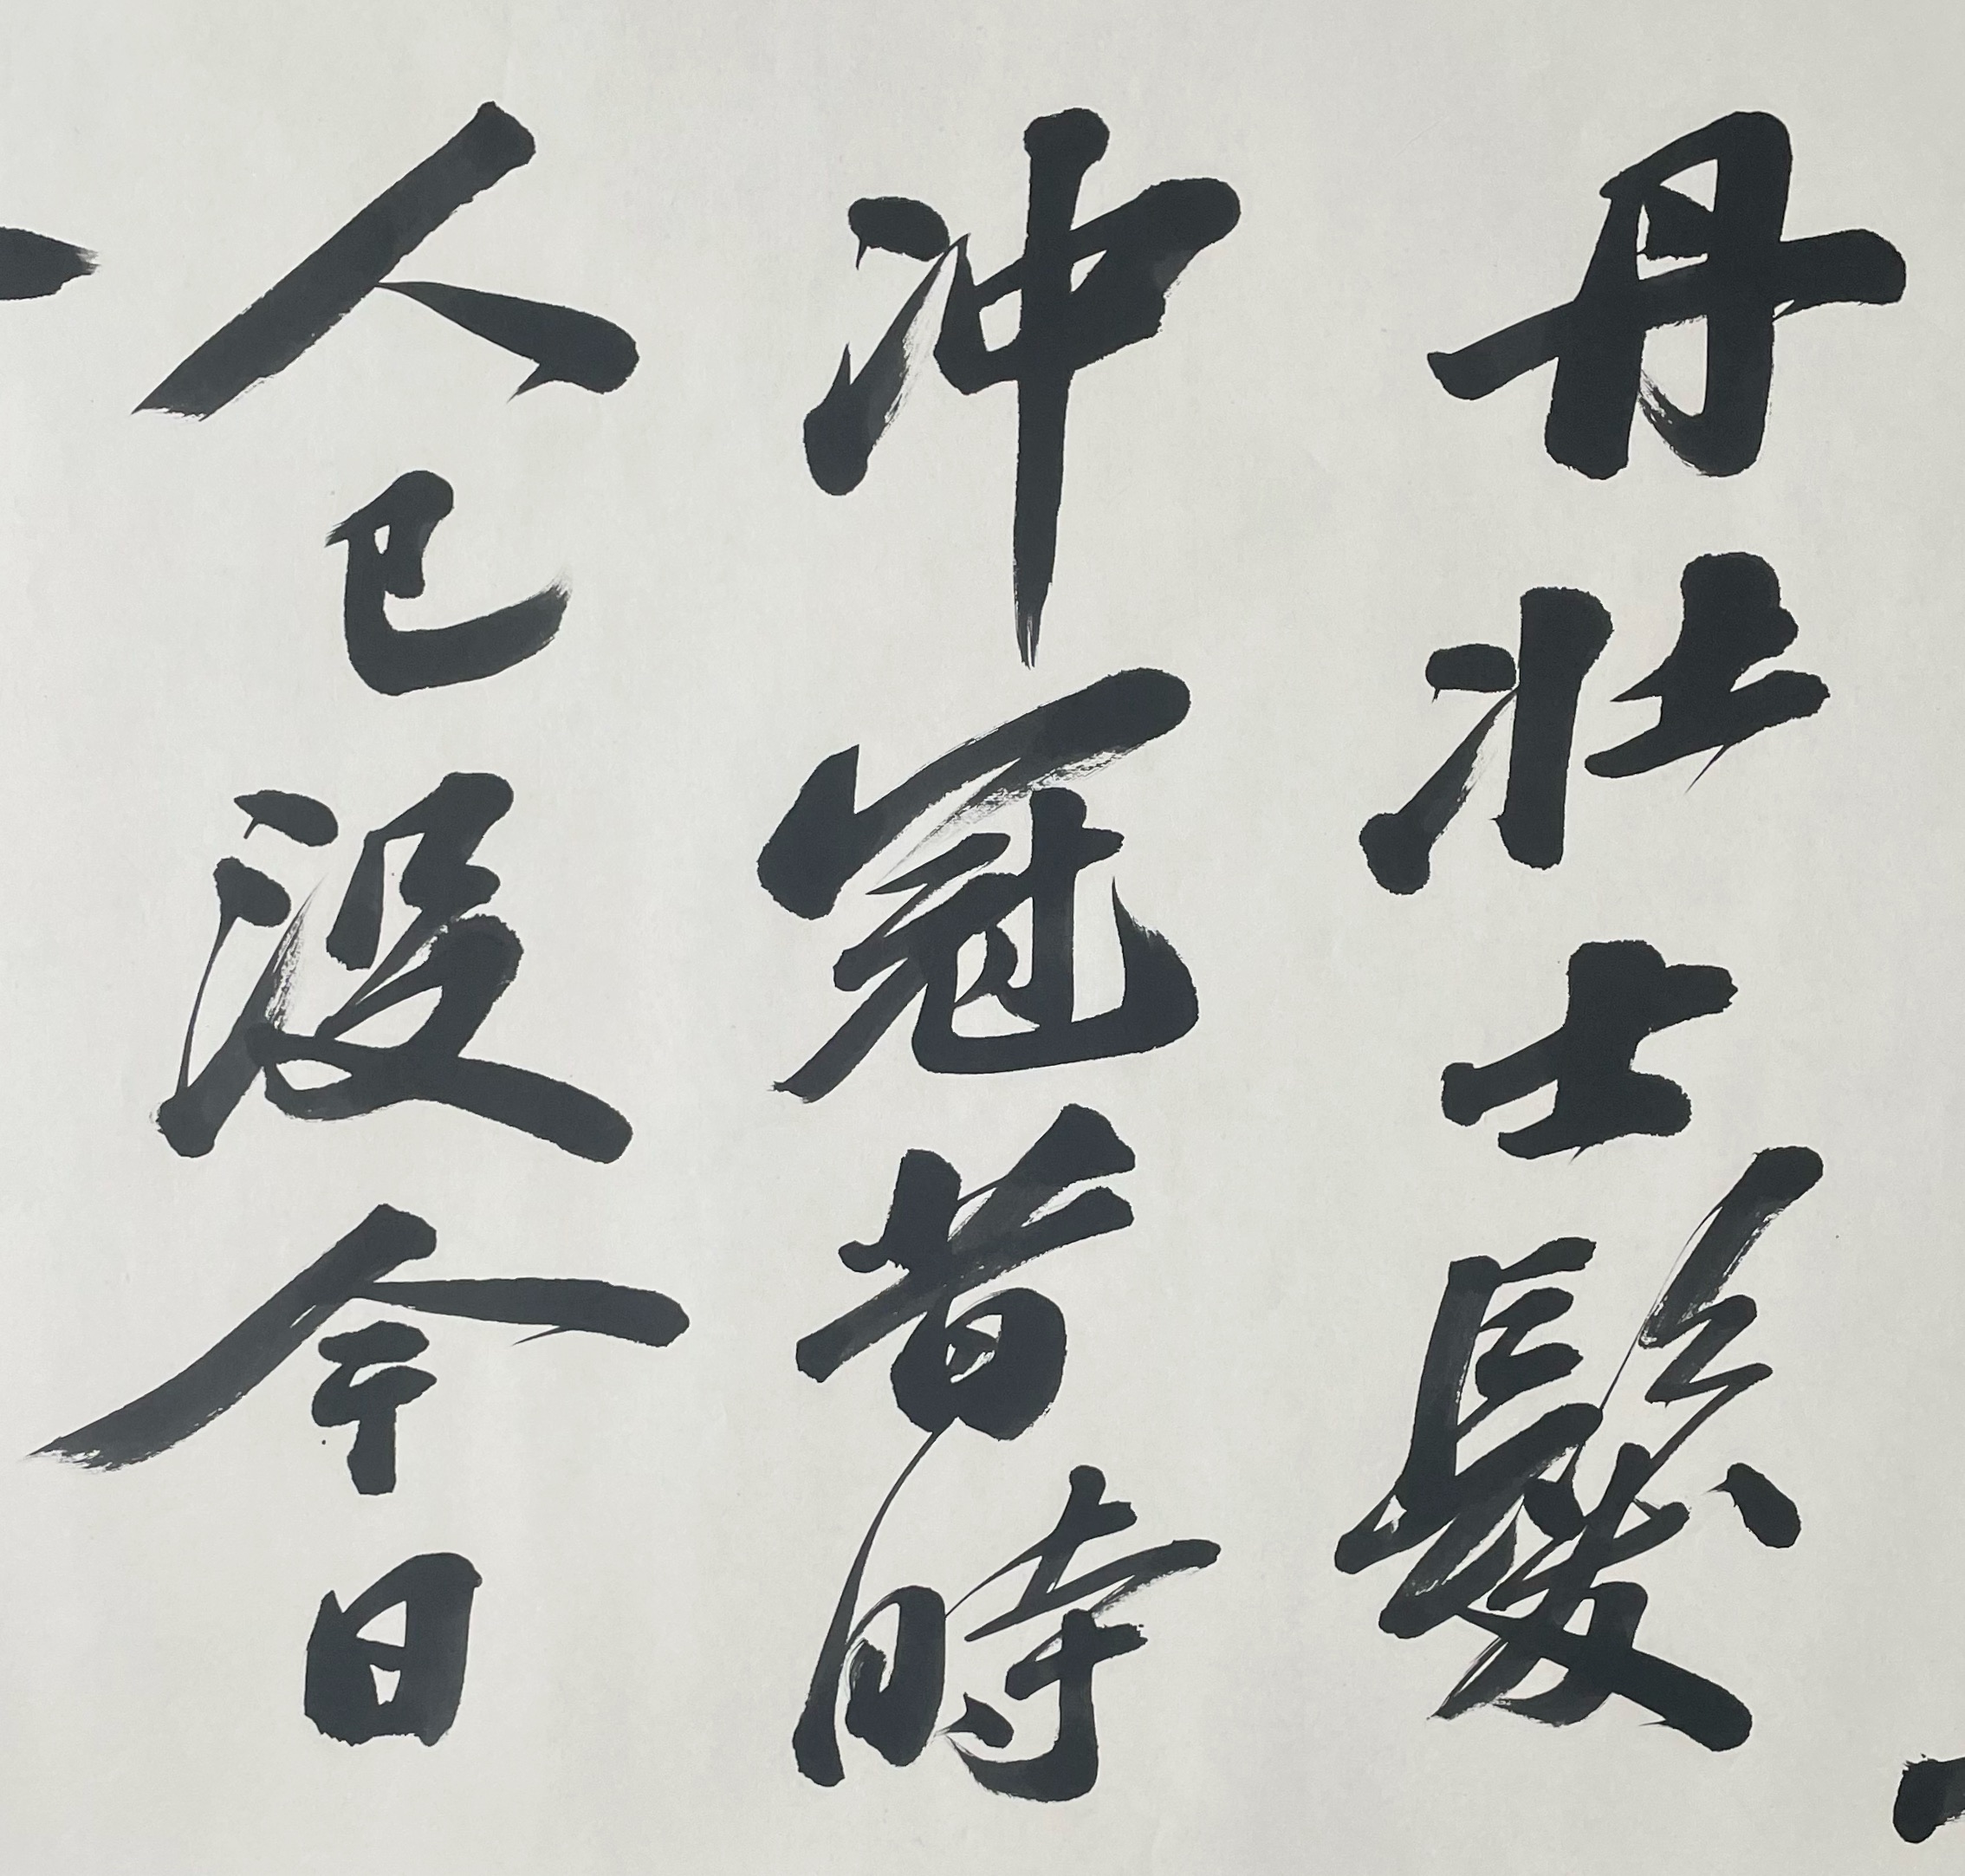 丹壮士髮
冲冠昔時
人已没今日